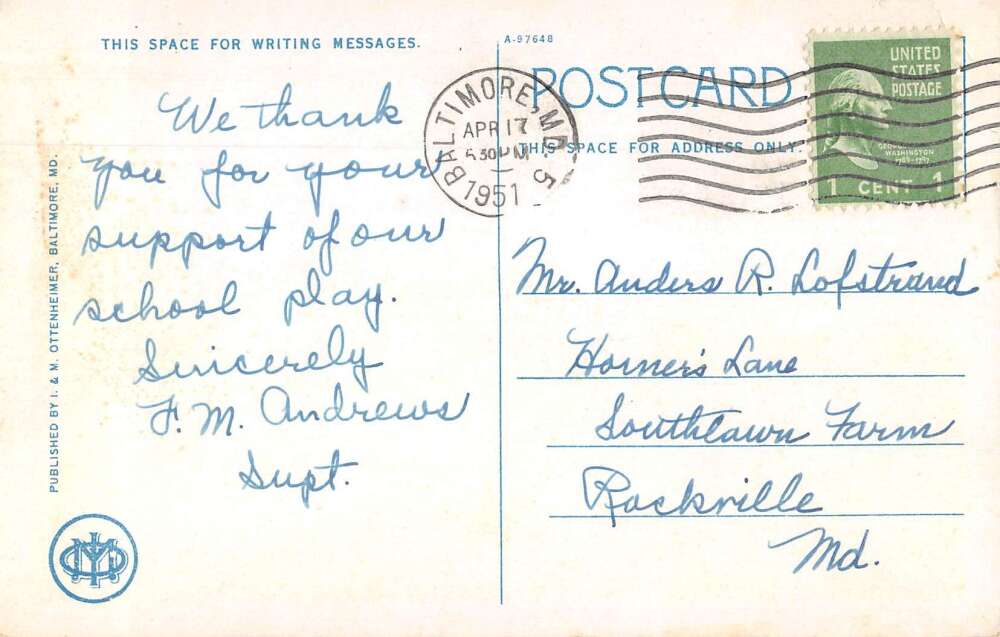 THIS SPACE FOR WRITING MESSAGES.
We thank
you for your
support of our
school play.
Sincerely
F. M. Andrews
Supt.
PUBLISHED BY I. & M. OTTENHEIMER, BALTIMORE, MD.
A-97648
POST CARD
THIS SPACE FOR ADDRESS ONLY.
BALTIMORE, MD. 5
APR 17
5 30 PM
1951
UNITED
STATES
POSTAGE
GEORGE
WASHINGTON
1 CENT 1
Mr. Anders R. Lofstrand
Horner's Lane
Southlawn Farm
Rockville
Md.